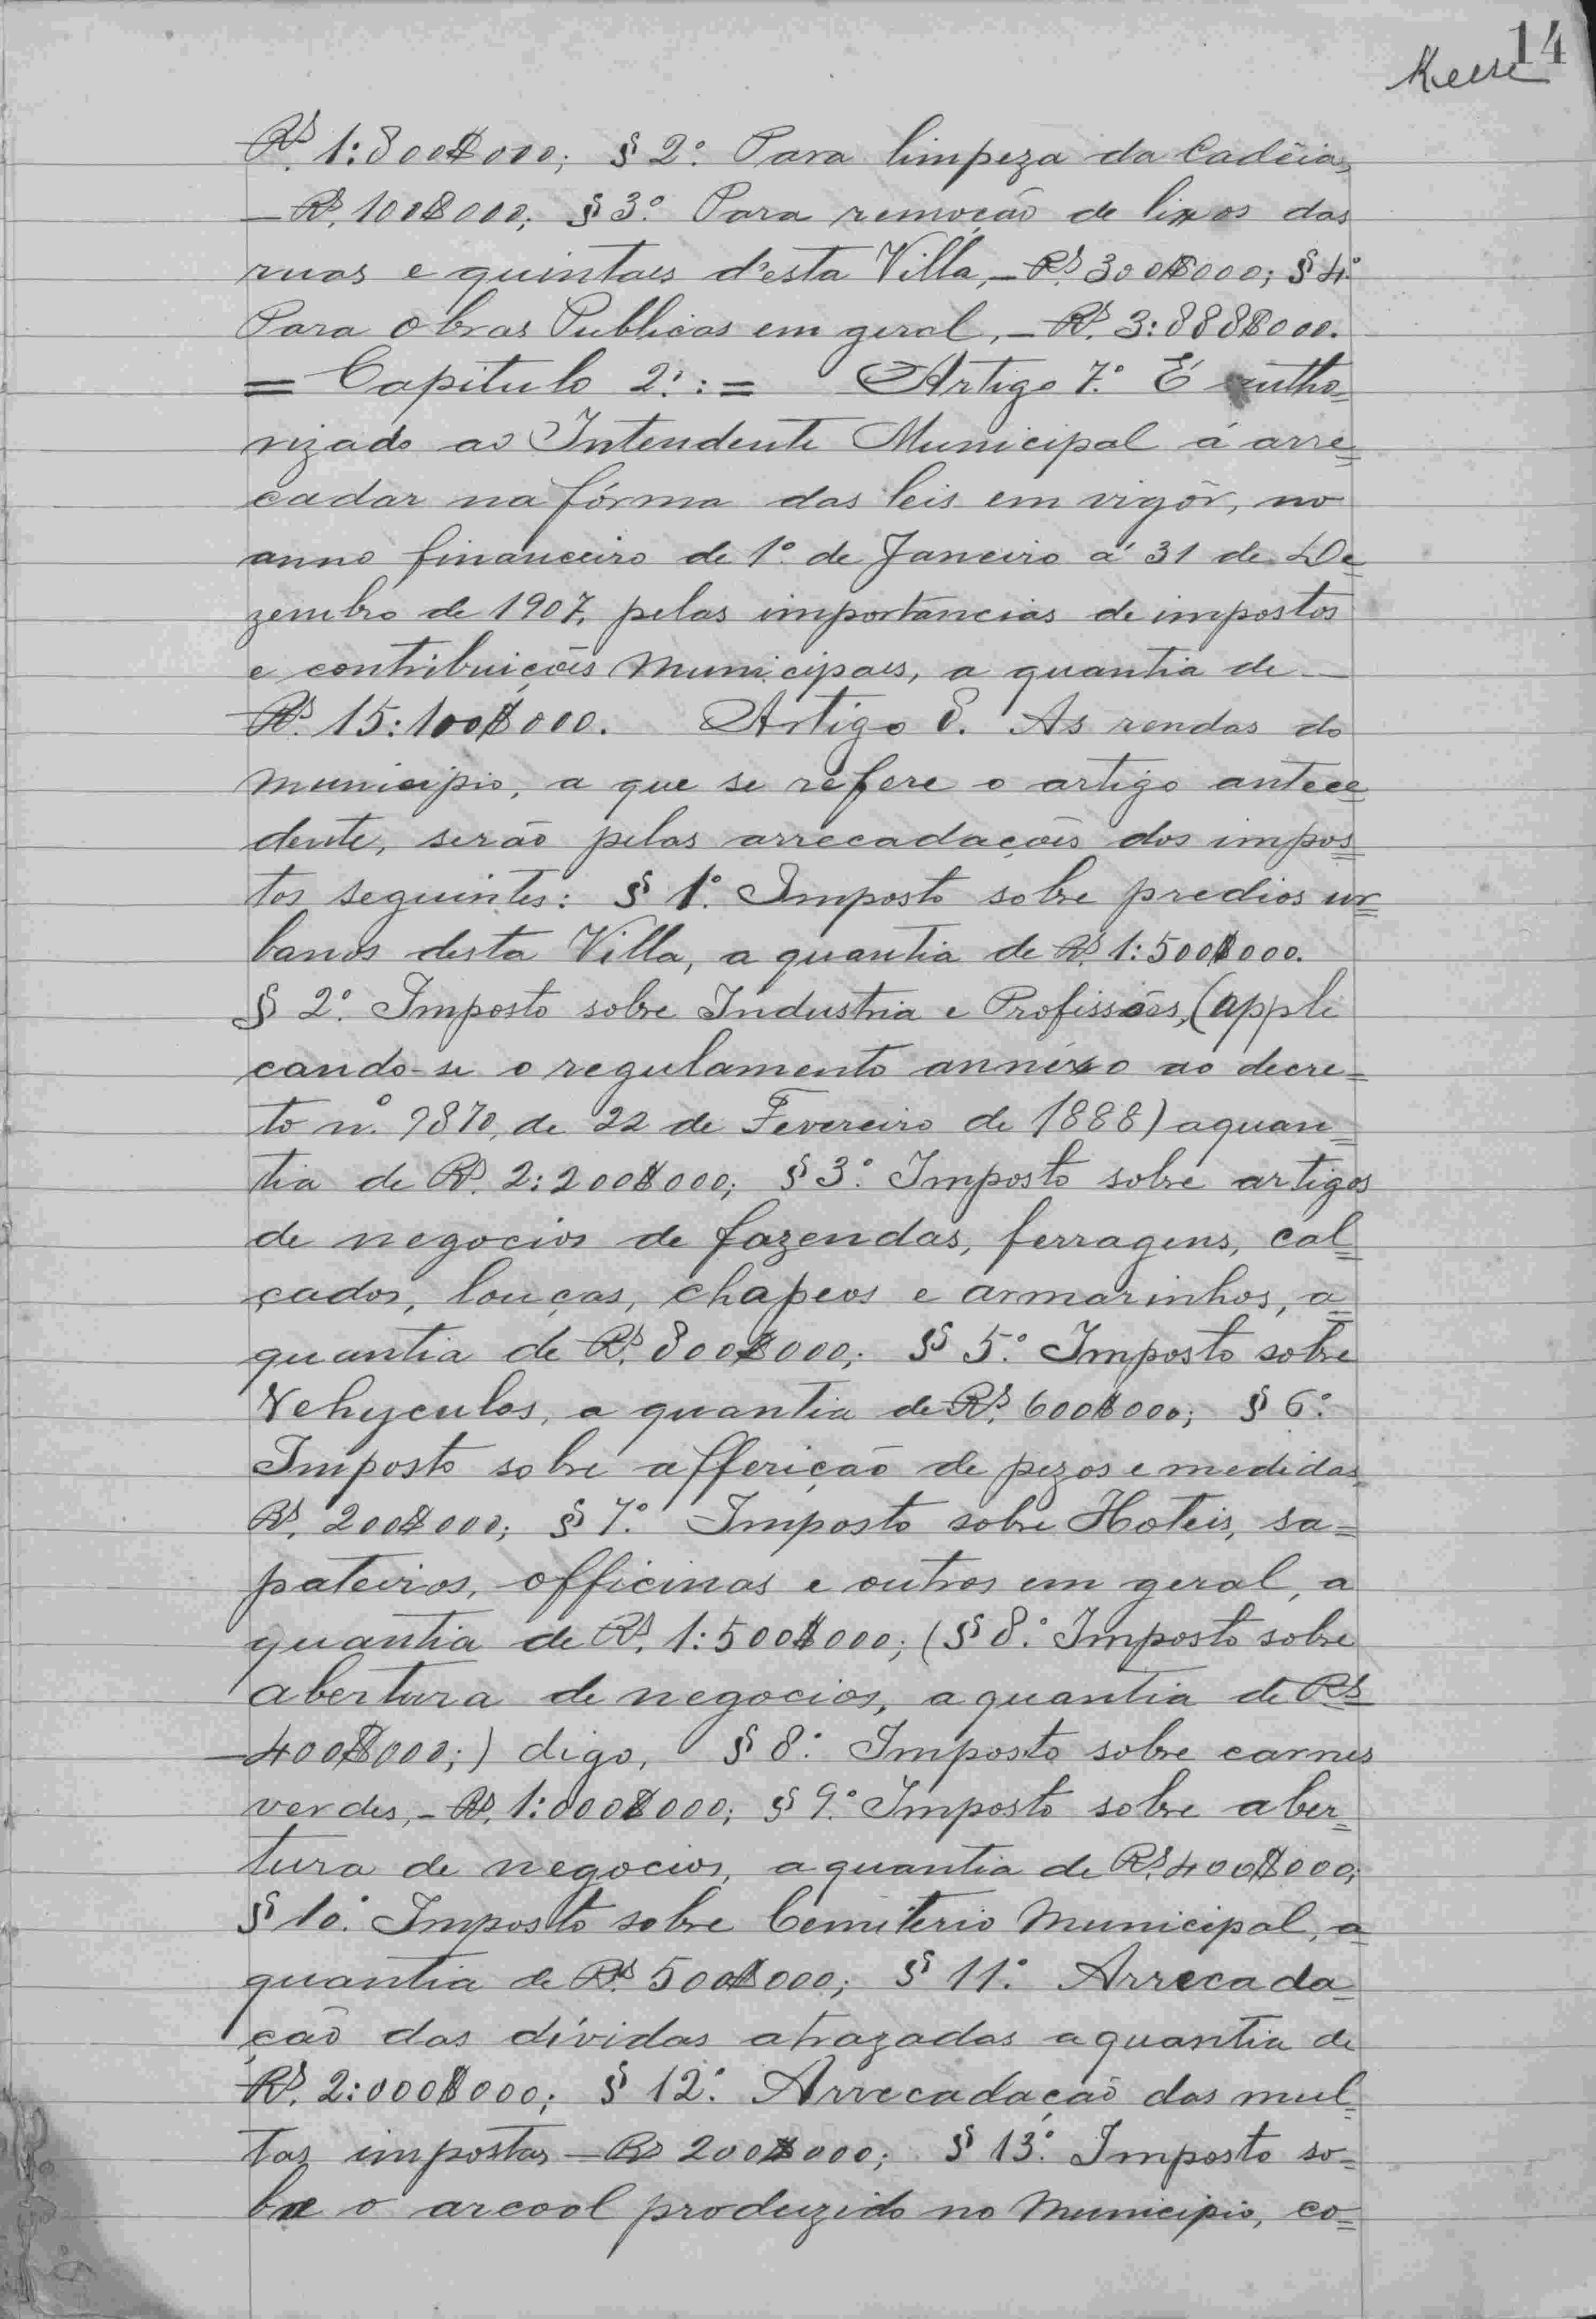 14
Rs. 1:800$000; § 2º. Para limpeza da Cadêia,
— Rs. 100$000; § 3º. Para remoção de lixos das
ruas e quintaes d'esta Villa, — Rs. 300$000; § 4º.
Para obras Publicas em geral, — Rs. 3:888$000.
= Capitulo 2º: = Artigo 7º. É autho=
rizado ao Intendente Municipal á arre=
cadar na fórma das leis em vigôr, no
anno financeiro de 1º. de Janeiro á 31 de De=
zembro de 1907, pelas importancias de impostos
e contribuições Municipaes, a quantia de —
Rs. 15:100$000. Artigo 8. As rendas do
municipio, a que se refere o artigo antece=
dente, serão pelas arrecadações dos impos=
tos seguintes: § 1º. Imposto sobre predios ur=
banos desta Villa, a quantia de Rs. 1:500$000.
§ 2º. Imposto sobre Industria e Profissões, (appli
cando-se o regulamento annexo ao decre=
to nº. 9870, de 22 de Fevereiro de 1888) a quan=
tia de Rs. 2:200$000; § 3º. Imposto sobre artigos
de negocios de fazendas, ferragens, cal=
çados, louças, chapeos e armarinhos, a=
quantia de Rs. 800$000; § 5º. Imposto sobre
Vehyculos, a quantia de Rs. 600$000; § 6º.
Imposto sobre afferição de pezos e medidas,
Rs. 200$000; § 7º. Imposto sobre Hoteis, sa=
pateiros, officinas e outros em geral, a
quantia de Rs. 1:500$000; (§ 8º. Imposto sobre
abertura de negocios, a quantia de Rs
— 400$000;) digo, § 8º. Imposto sobre carnes
verdes, — Rs. 1:000$000; § 9º. Imposto sobre aber=
tura de negocios, a quantia de Rs. 400$000;
§ 10º. Imposto sobre Cemiterio Municipal, a
quantia de Rs. 500$000; § 11º. Arrecada=
ção das dívidas atrazadas a quantia de
Rs. 2:000$000; § 12º. Arrecadação das mul=
tas impostas — Rs 200$000; § 13º. Imposto so=
bre o arcool produzido no Municipio, co=